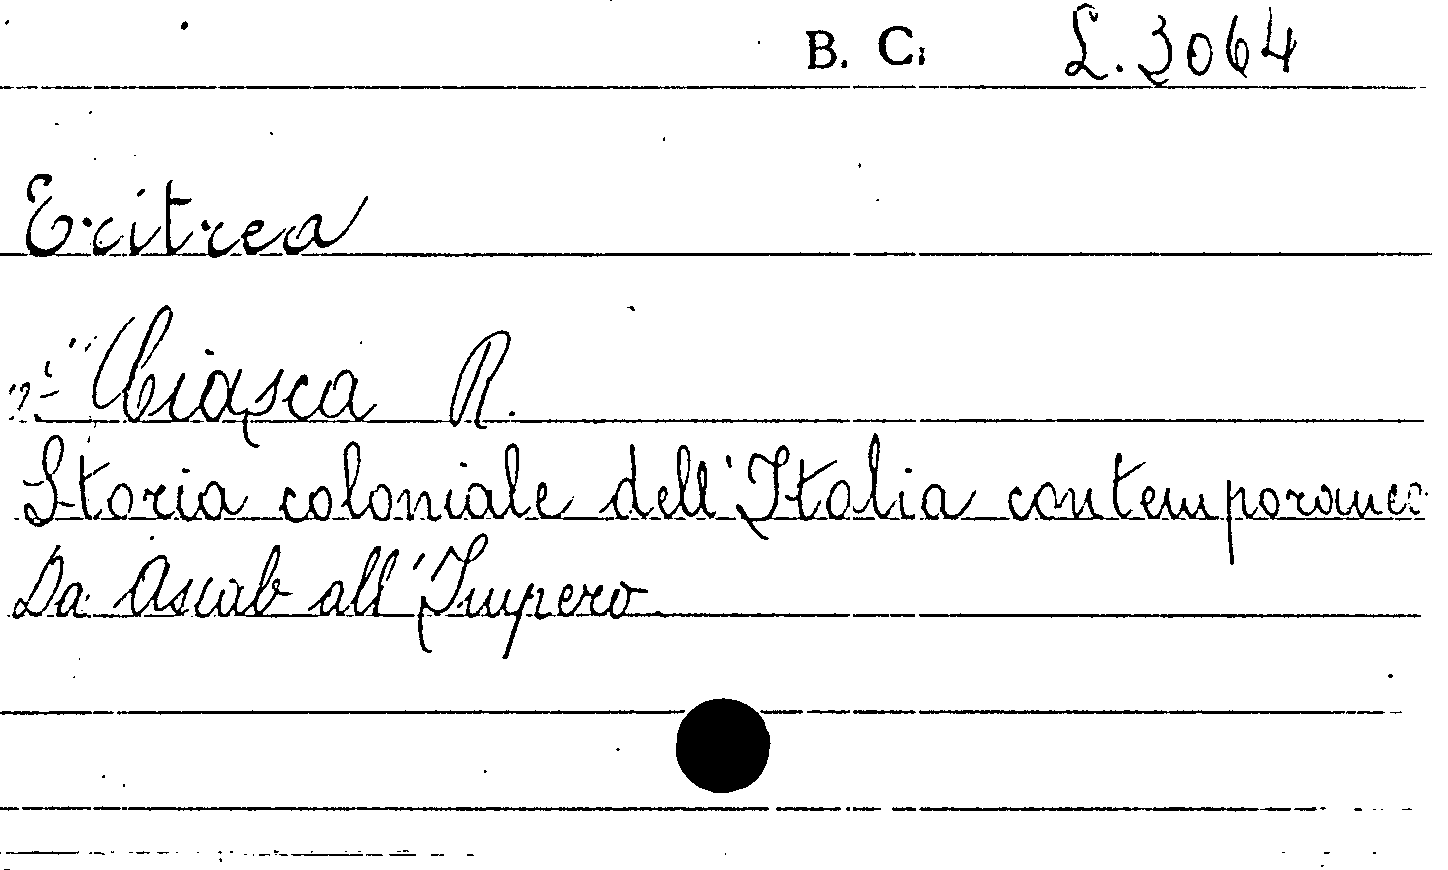 B. C. L. 3064
Eritrea
Ciasca R.
Storia coloniale dell'Italia contemporanea
Da Assab all'Impero.